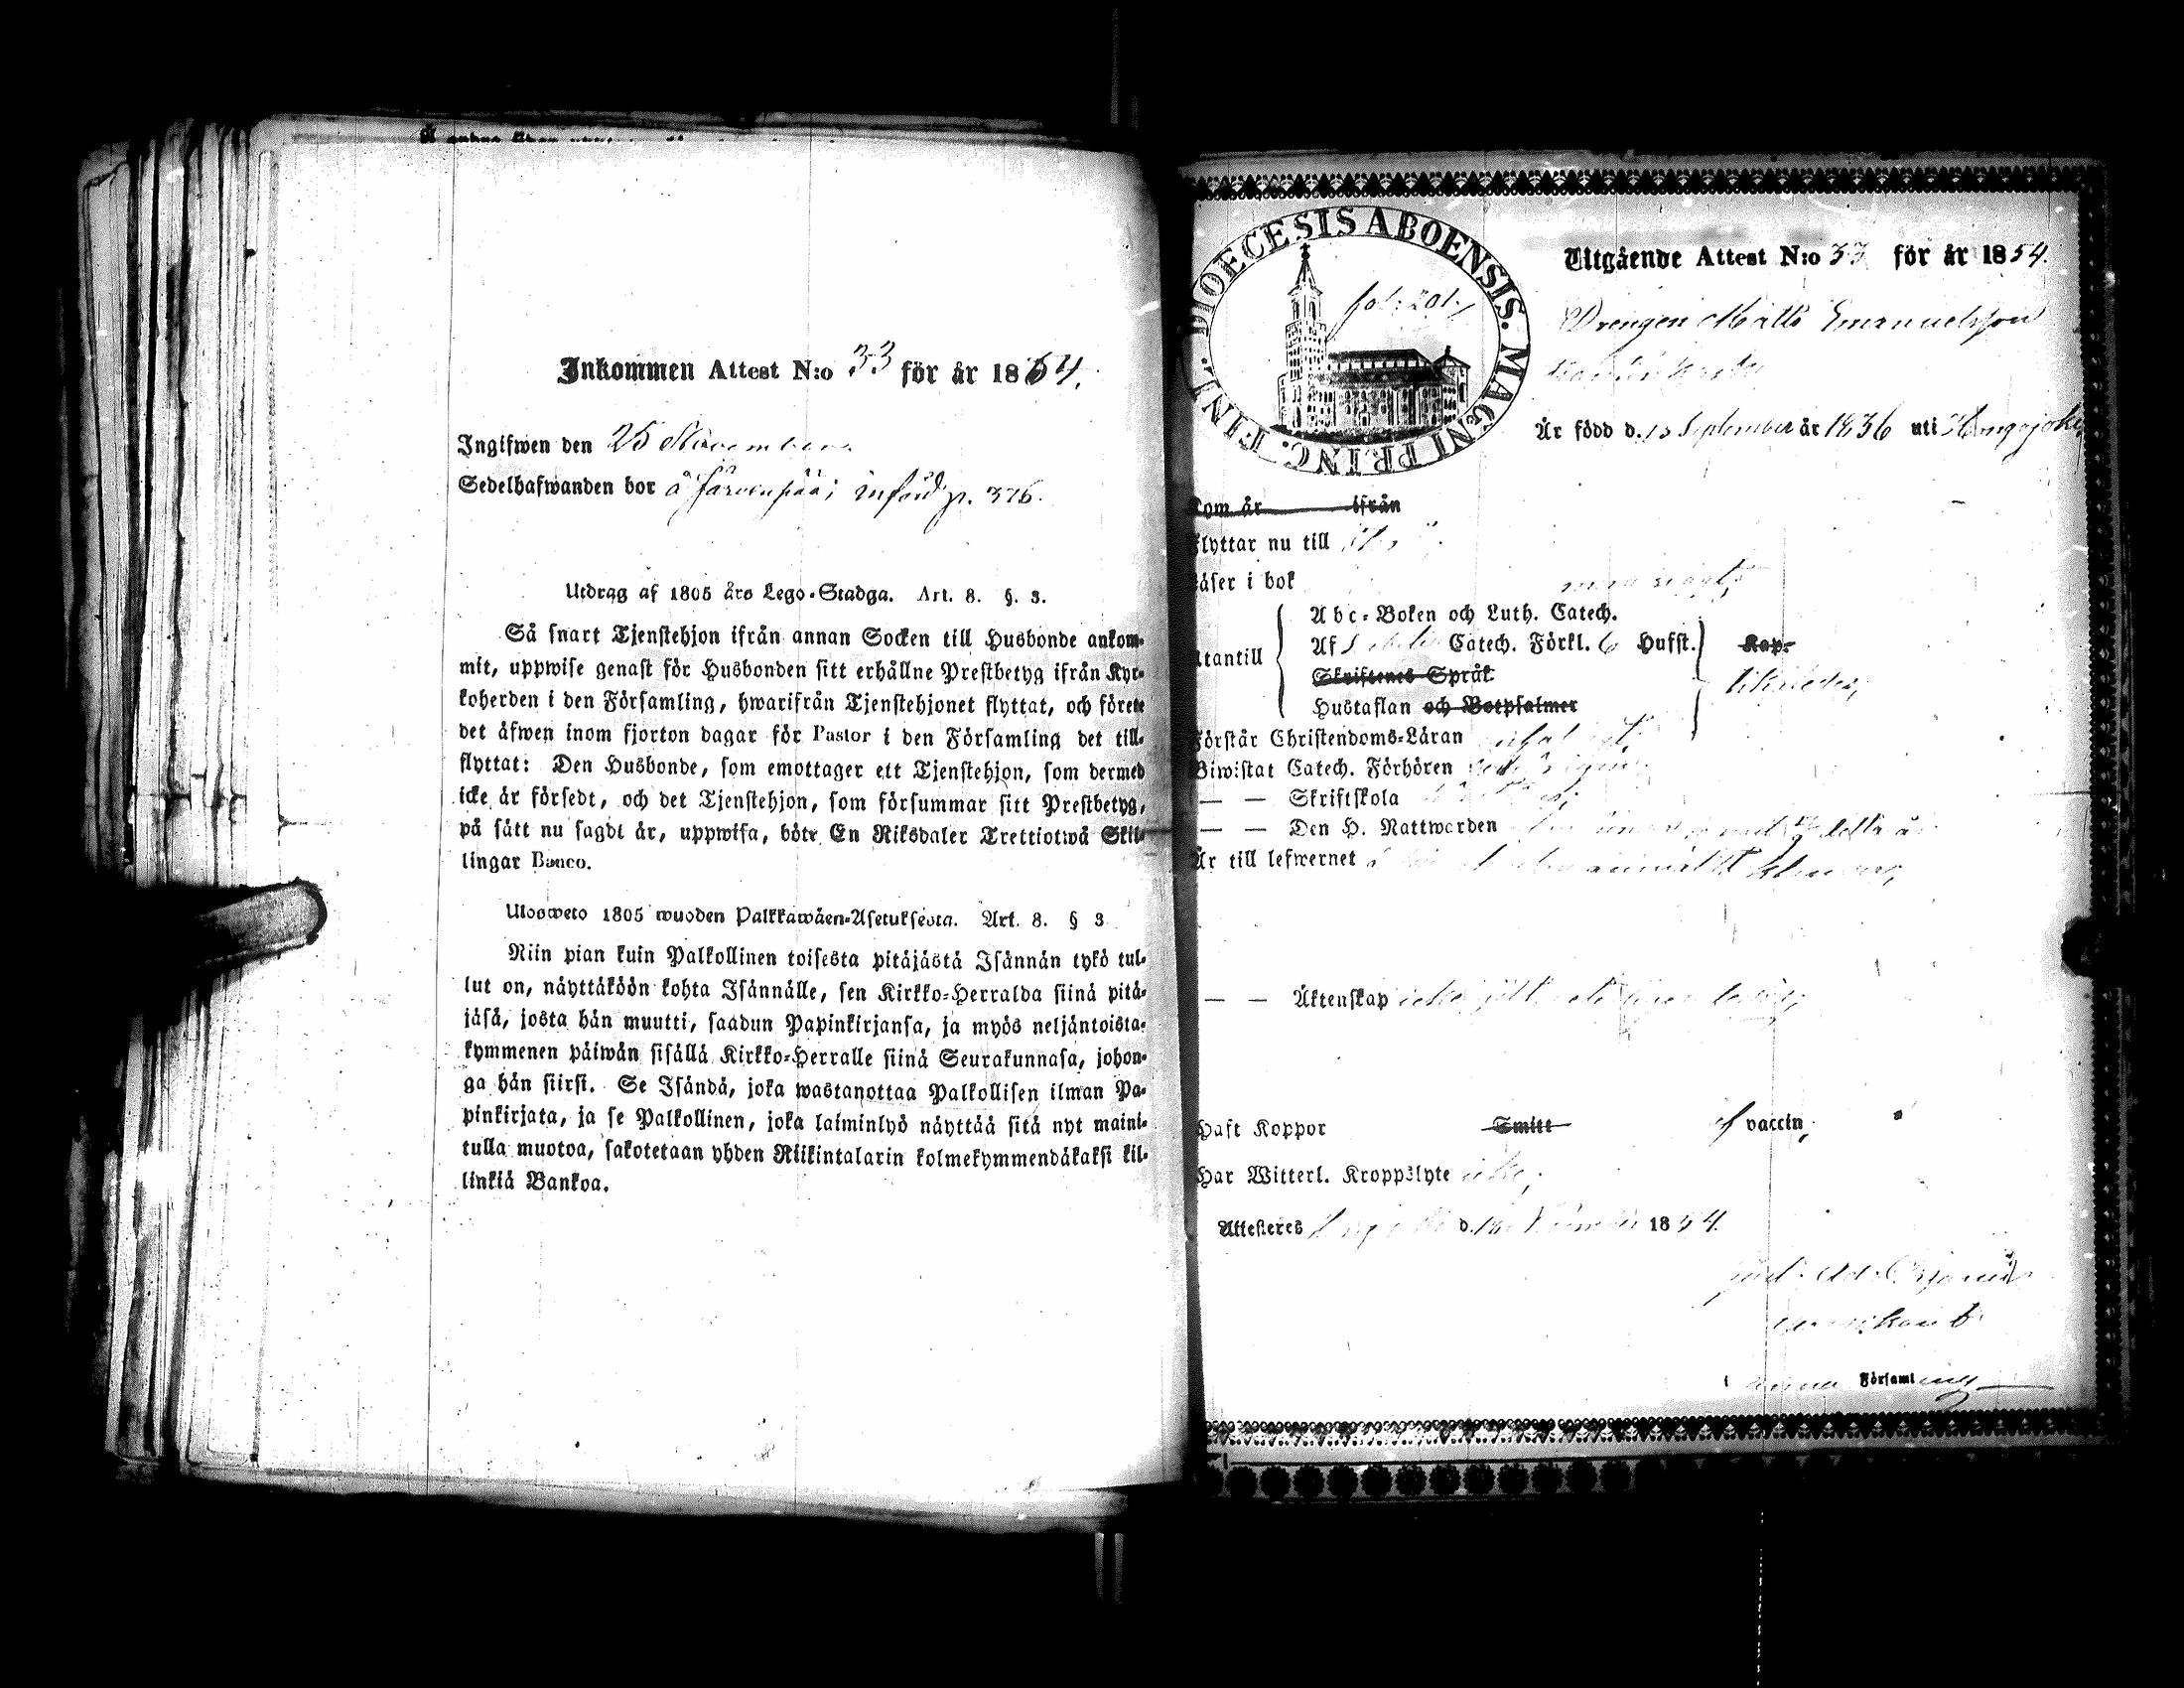 Inkommen Attest N:o 33 för år 1854.
Ingifwen den 25 November
Sedelhafwanden bor å Järvenpää; införd p. 376.
Utdrag af 1805 års Lego-Stadga. Art. 8. §. 3.
Så snart Tjenstehjon ifrån annan Socken till Husbonde ankom-
mit, uppwise genast för Husbonden sitt erhållne Prestbetyg ifrån Kyr-
koherden i den Församling, hwarifrån Tjenstehjonet flyttat, och förete
det åfwen inom fjorton dagar för Pastor i den Församling det till-
flyttat: Den Husbonde, som emottager ett Tjenstehjon, som dermed
icke är försedt, och det Tjenstehjon, som försummar sitt Prestbetyg,
på sätt nu sagdt är, uppwisa, böte En Riksdaler Trettiotwå Skil-
lingar Banco.
Ulosweto 1805 wuoden Palkkawäen-Asetuksesta. Art. 8. § 3
Niin pian kuin Palkollinen toisesta pitäjästä Isännän tykö tul-
lut on, näyttäköön kohta Isännälle, sen Kirkko-Herralda siinä pitä-
jäsä, josta hän muutti, saadun Papinkirjansa, ja myös neljäntoista-
kymmenen päiwän sisällä Kirkko-Herralle siinä Seurakunnasa, johon-
ga hän siirsi. Se Isändä, joka wastanottaa Palkollisen ilman Pa-
pinkirjata, ja se Palkollinen, joka laiminlyö näyttää sitä nyt maini-
tulla muotoa, sakotetaan yhden Riikintalarin kolmekymmendäkaksi kil-
linkiä Bankoa.
DIOECESIS ABOENSIS. MAGNI PRINC. FINL.
fol. 201.
Utgående Attest N:o 33 för år 1854.
Drengen Matts Emanuelsson
Är född d. 13 September år 1836 uti Hongojoki,
Kom år ifrån
Flyttar nu till
Läser i bok
Utantill
Abc-Boken och Luth. Catech.
Af Catech. Förkl. 6 Hufst.
Kap.
Skriftenes Språk
Hustaflan och Botpsalmer
likaledes;
Förstår Christendoms-Läran
Biwistat Catech. Förhören
— — Skriftskola
— — Den H. Nattwarden detta år
Är till lefwernet
— — Äktenskap icke
Haft Koppor Smitt af vaccin,
Har Witterl. Kroppslyte icke,
Attesteres d. 1854.
Församling